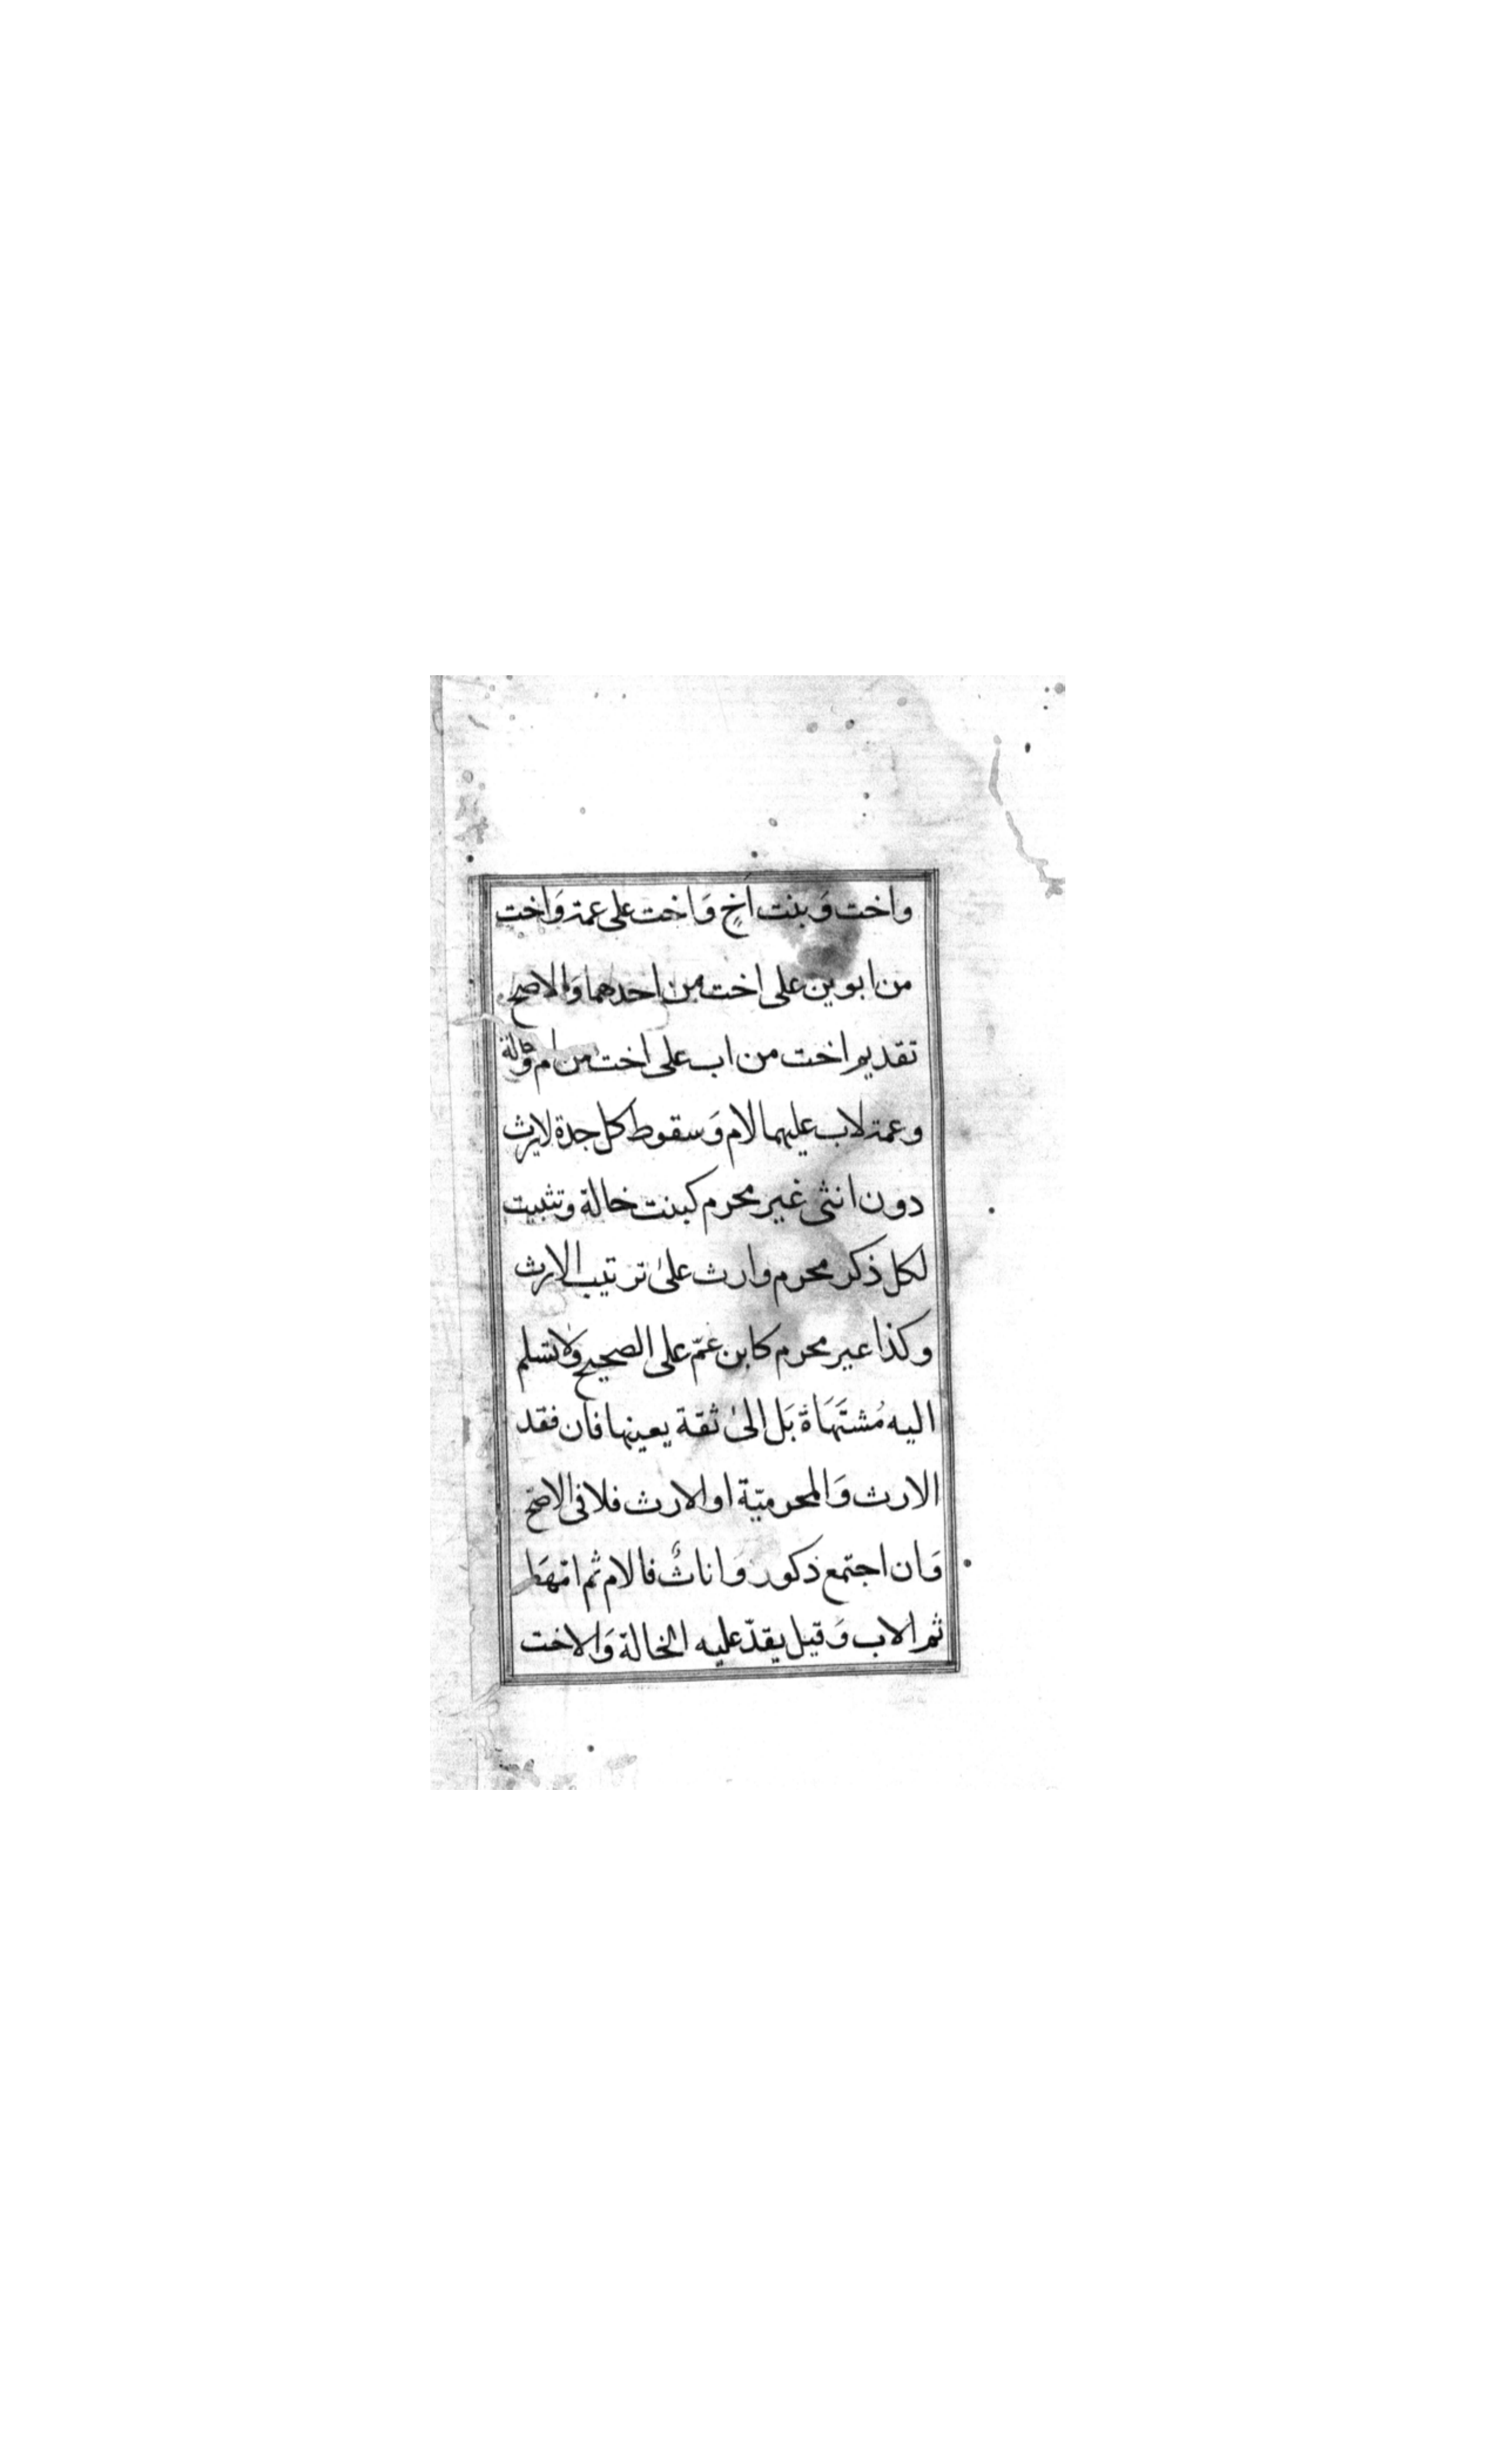 واخت وَبنت اخٍ وَاخت على عمة وَاخت
من ابوين على اخت من احدهما وَالاصح
تقديم اخت من اب على اخت من ام وخالة
وعمة لاب عليهما لام وَسقوط كل جدة لاترث
دون انثى غير محرم كبنت خالة وتثبيت
لكل ذكر محرم وارث على ترتيب الارث
وكذا غير محرم كابن عمّ على الصحيح ولاتسلم
اليه مُشتَهَاة بَل الى ثقة يعينها فان فقد
الارث وَالمحرميّة او الارث فلا فى الاصحّ
وَان اجتمع ذكور وَاناثٌ فالام ثم امّهَا
ثم الاب وَقيل يقدّ عليه الخالة وَالاخت